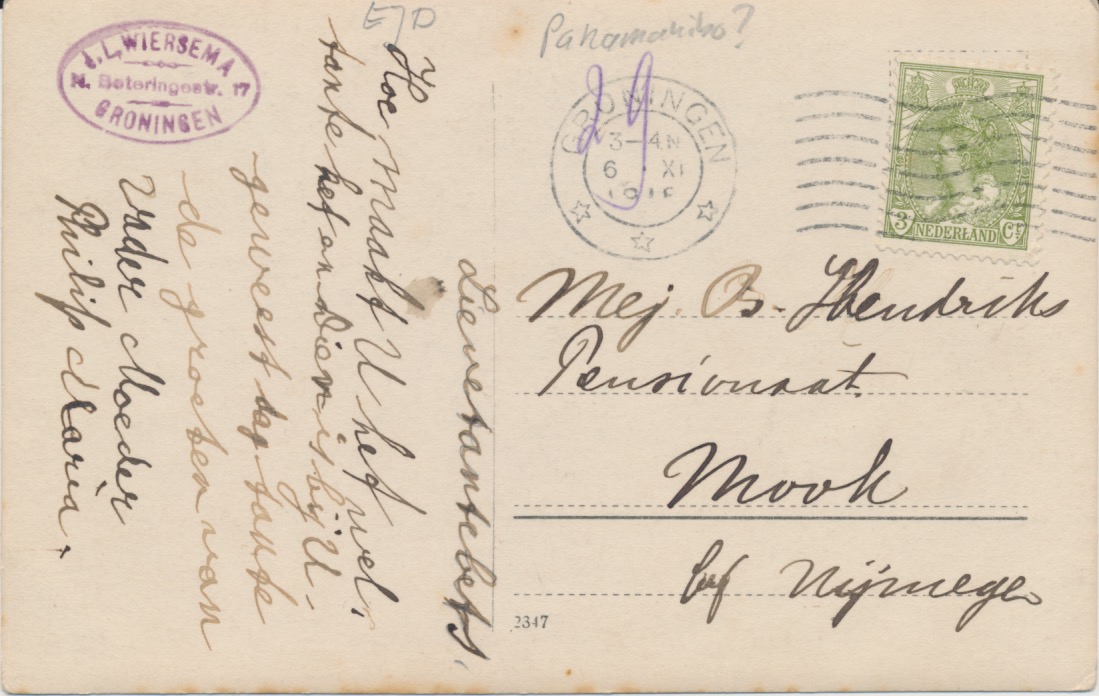 J. L. WIERSEMA
N. Boteringestr. 17
GRONINGEN
E/D
Paramaribo?
29
GRONINGEN
3-4N
6 XI
3 NEDERLAND CT
Lieve tante bets,
Hoe maakt U het wel.
tante bets en Dien is bij U
geweest dag tante
de groeten van
Vader Moeder
Philip Maria.
Mej. B. Hendriks
Pensionaat.
Mook
bij Nijmegen
2347